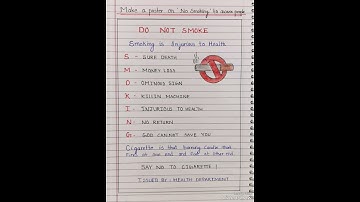 Make a poster on "No Smoking" to aware people
DO NOT SMOKE
Smoking is Injurious to Health
S - SURE DEATH
M - MONEY LOSS
O - OMINOUS SIGN
K - KILLIN MACHINE
I - INJURIOUS TO HEALTH
N - NO RETURN
G - GOD CANNOT SAVE YOU
Cigarette is that burning candle that
Fires at one end and Fool at other end.
SAY NO TO CIGARETTE !
ISSUED BY - HEALTH DEPARTMENT